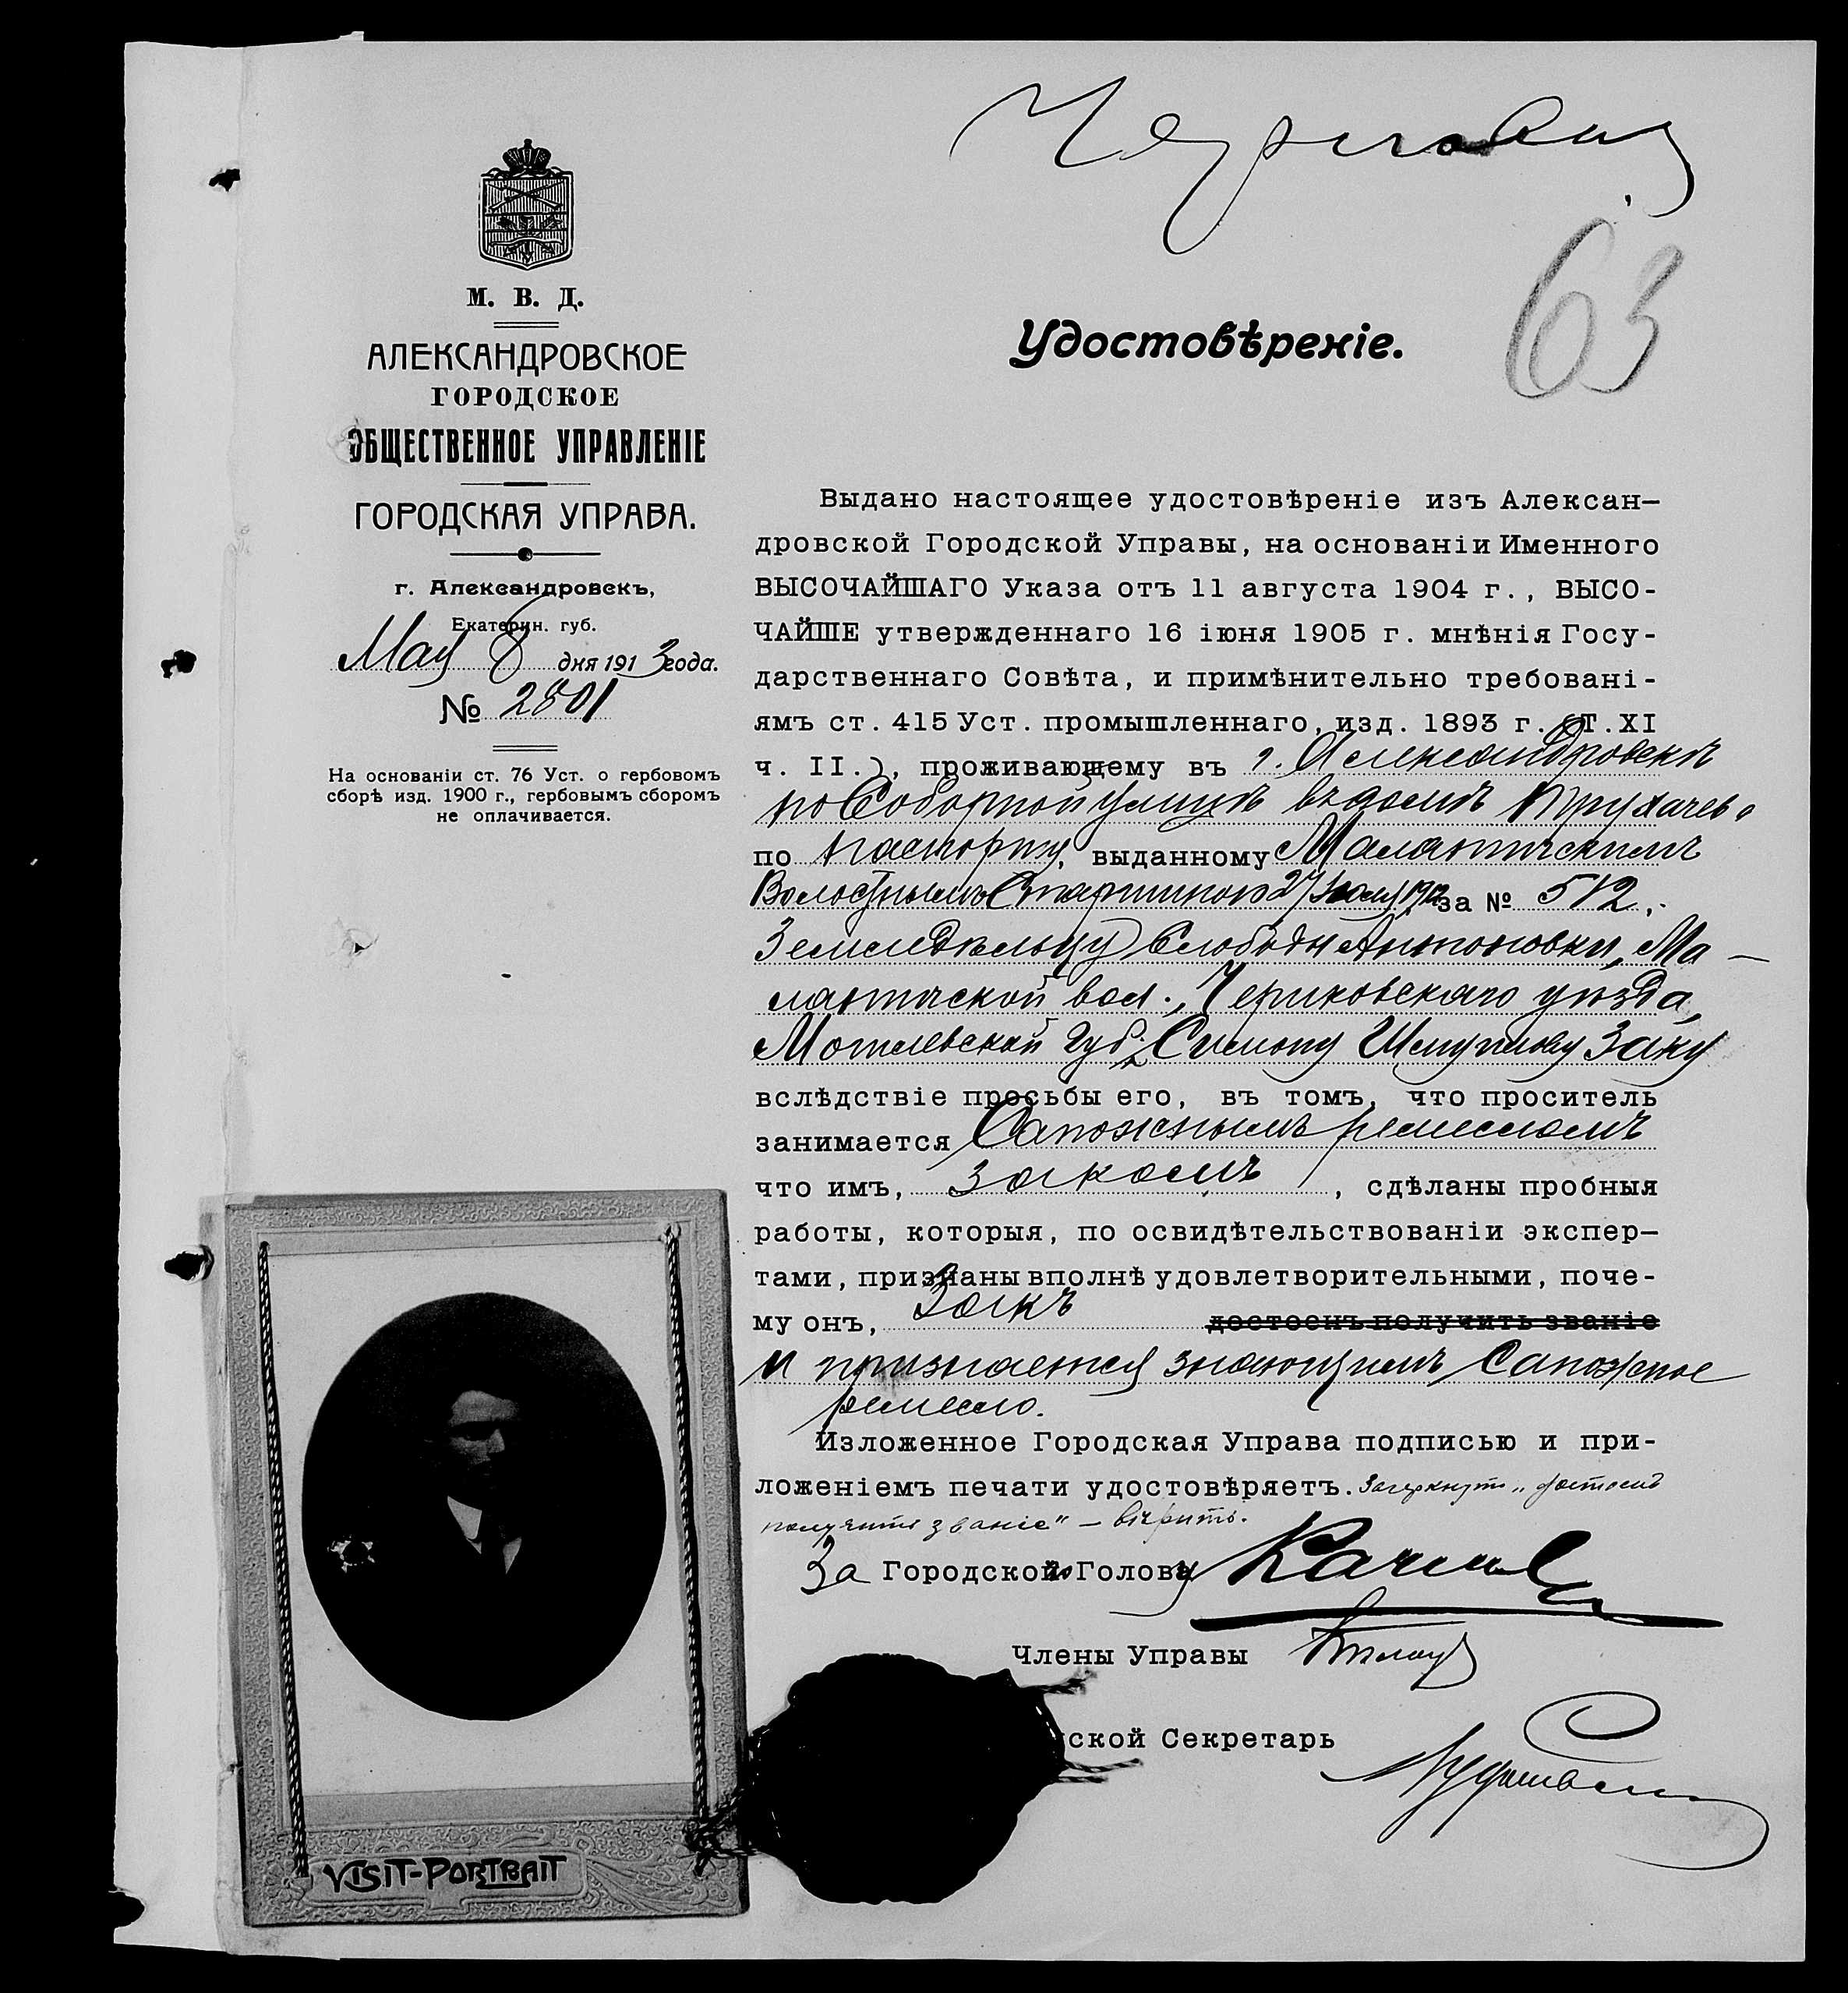 63
М. В. Д.
АЛЕКСАНДРОВСКОЕ
ГОРОДСКОЕ
ОБЩЕСТВЕННОЕ УПРАВЛЕНІЕ
ГОРОДСКАЯ УПРАВА.
г. Александровскъ,
Екатерин. губ.
Мая 8 дня 1913 года.
№ 2801
На основаніи ст. 76 Уст. о гербовомъ
сборѣ изд. 1900 г., гербовымъ сборомъ
не оплачивается.
Удостовѣреніе.
Выдано настоящее удостовѣреніе изъ Алексан-
дровской Городской Управы, на основаніи Именного
ВЫСОЧАЙШАГО Указа отъ 11 августа 1904 г., ВЫСО-
ЧАЙШЕ утвержденнаго 16 іюня 1905 г. мнѣнія Госу-
дарственнаго Совѣта, и примѣнительно требовані-
ямъ ст. 415 Уст. промышленнаго, изд. 1893 г. (Т. XI
ч. II.), проживающему въ г. Александровскѣ
по Соборной улицѣ въ домѣ
по паспорту, выданному Малятичскимъ
Волостнымъ Старшиной 27 1912 за № 512,
Земледѣльцу Слободы Антоновки, Ма-
лятичской вол., Чериковскаго уѣзда,
Могилевской губ., Симону Шмуйлову Заку
вслѣдствіе просьбы его, въ томъ, что проситель
занимается Сапожнымъ ремесломъ
что имъ, Закомъ, сдѣланы пробныя
работы, которыя, по освидѣтельствованіи экспер-
тами, признаны вполнѣ удовлетворительными, поче-
му онъ, Закъ достоенъ получить званіе
и признается знающимъ Сапожное
ремесло.
Изложенное Городская Управа подписью и при-
ложеніемъ печати удостовѣряетъ. Зачеркнуто „достоенъ
получить званіе" — вѣрить.
За Городского Голову
Члены Управы
ской Секретарь
VISIT-PORTRAIT